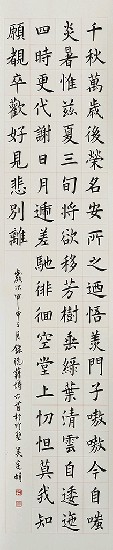 千秋萬歲後榮名安所之悟羨門子噭噭今自嗤
炎暑惟茲夏三旬將欲移芳樹垂綠葉清雲自逶迤
四時更代謝日月遞差馳徘徊空堂上忉怛莫我知
願覩卒歡好見悲別離
歲次甲申 錄阮籍詩